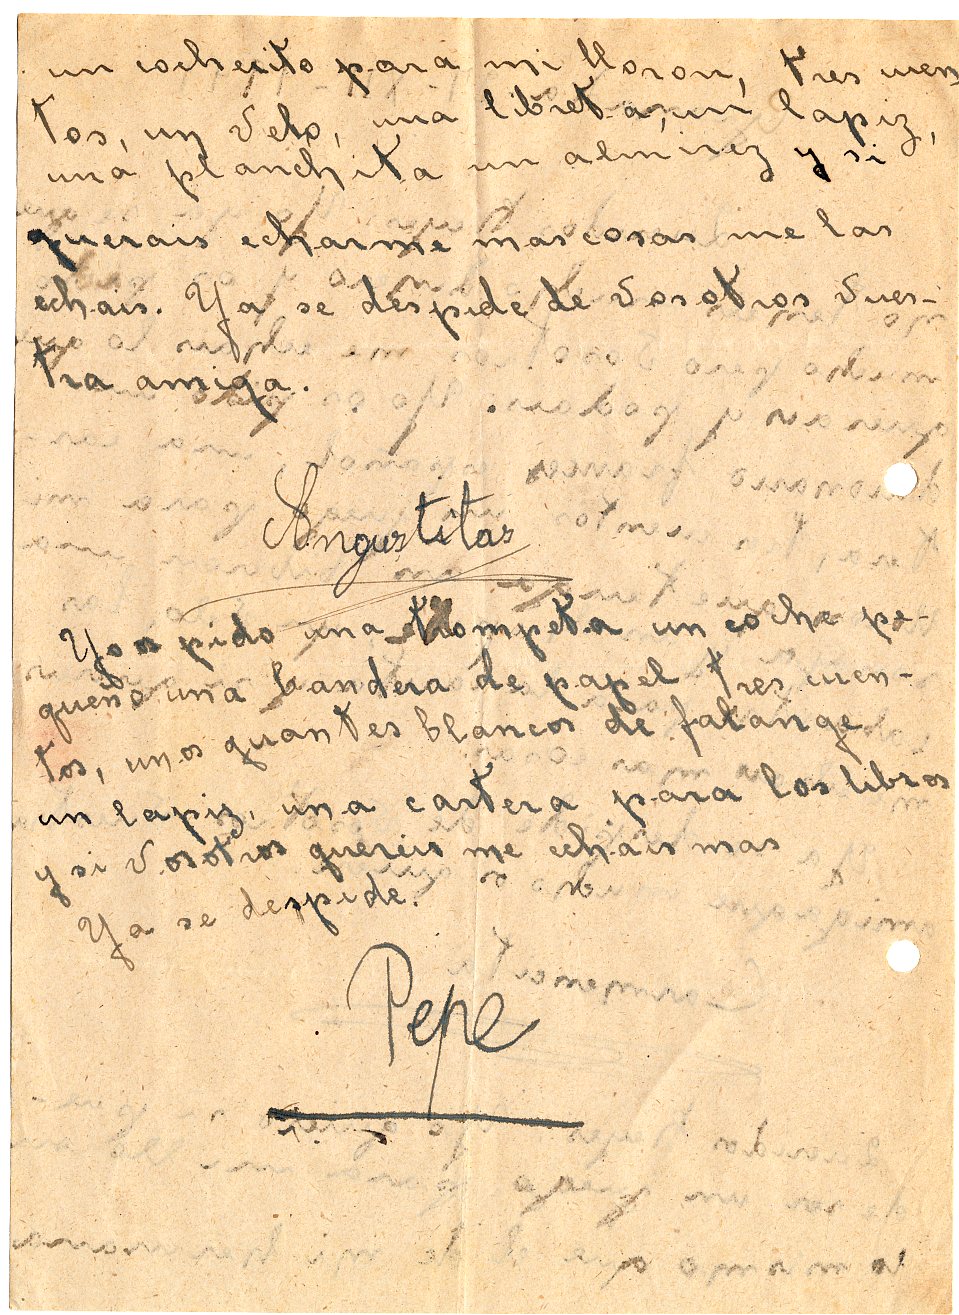 un cochecito para mi lloron, tres cuen-
tos, un velo, una libreta, un lapiz,
una planchita un almirez y si
querais echarme mas cosas me las
echais. Ya se despide de vosotros vues-
tra amiga.
Angustitas
Yo os pido una trompeta un coche pe-
queño una bandera de papel tres cuen-
tos, unos guantes blancos de falange
un lapiz, una cartera para los libros
y si vosotros quereis me echais mas
Ya se despide.
Pepe